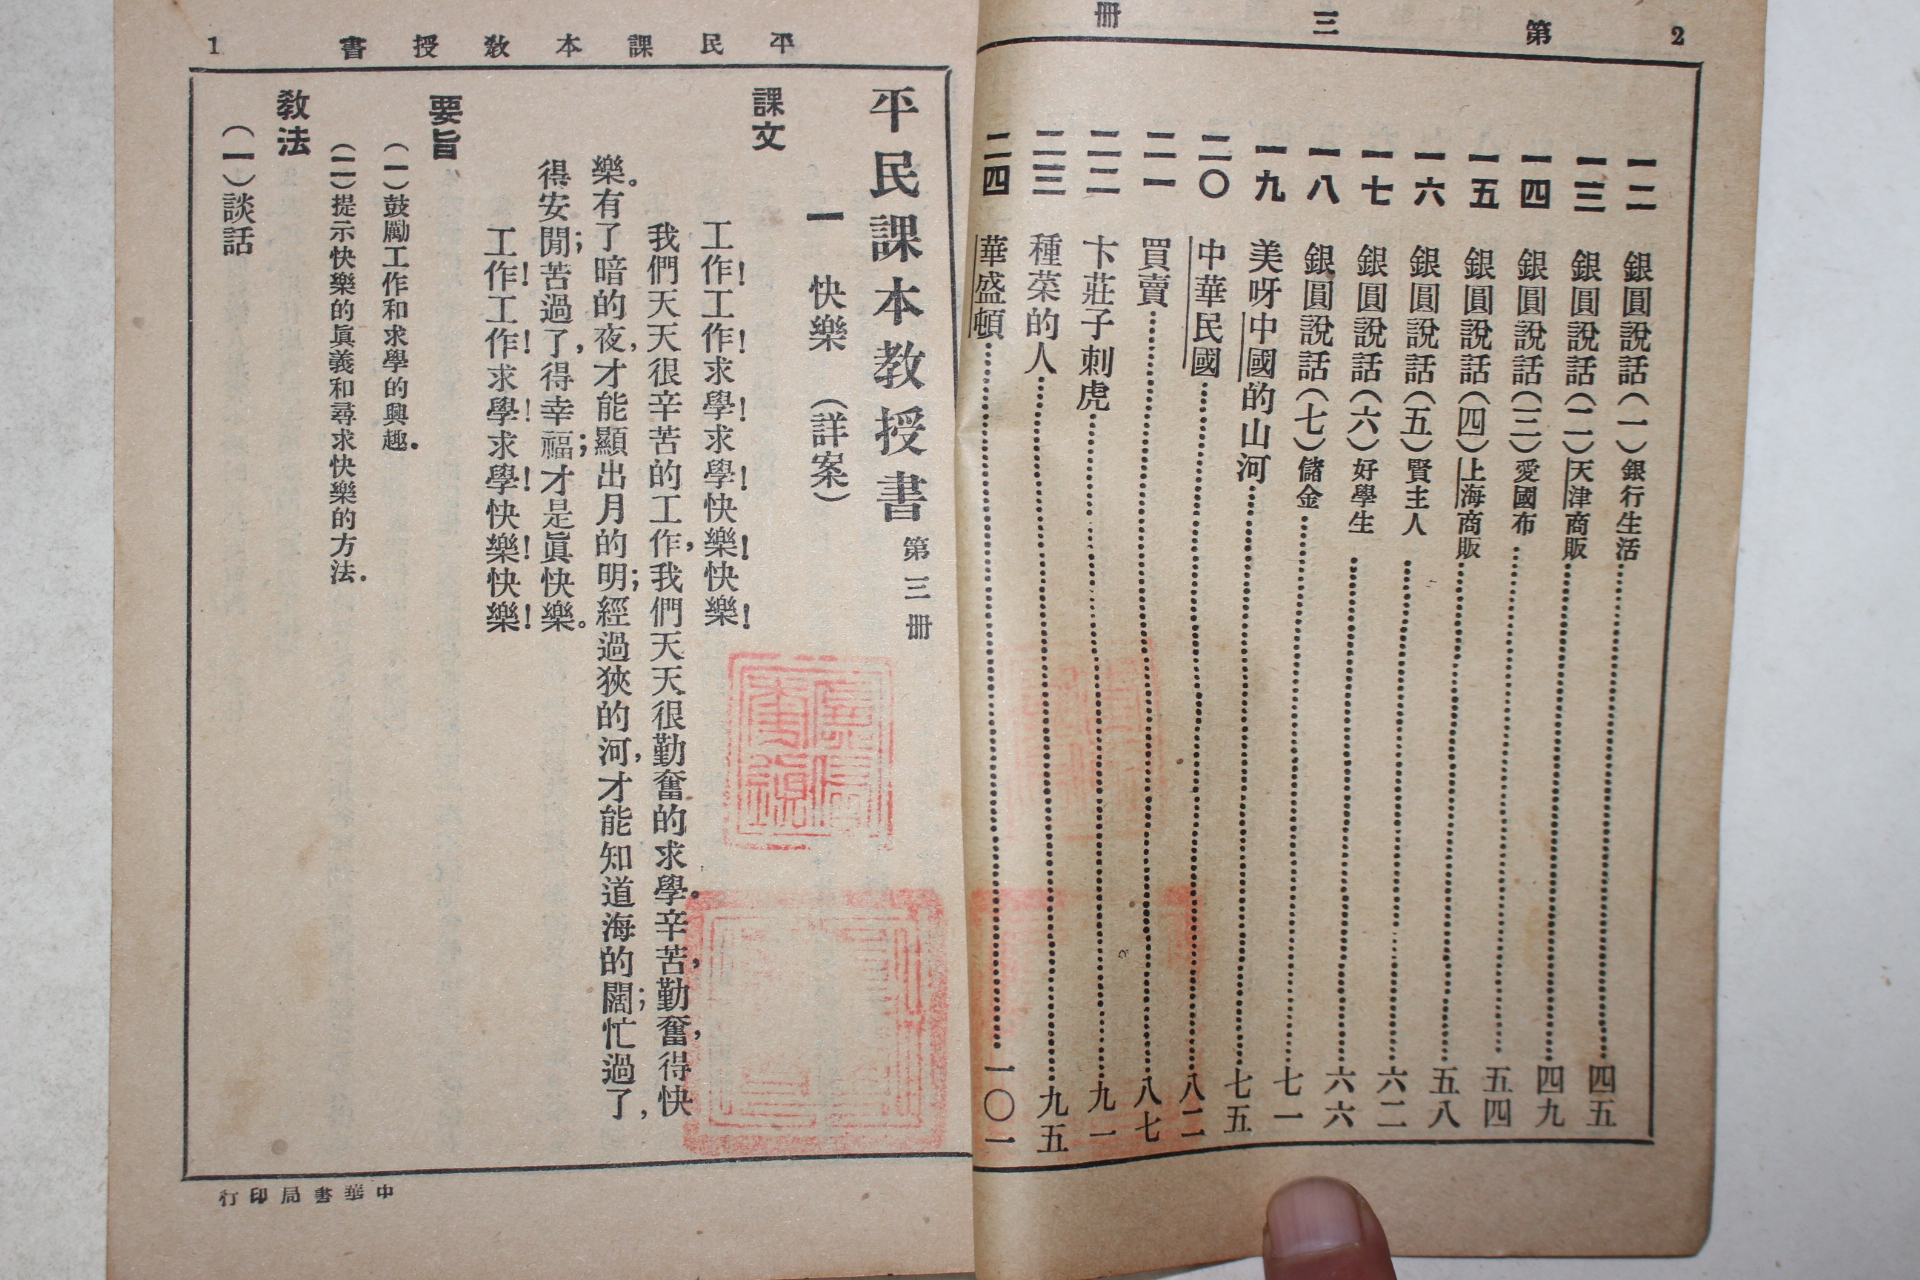 第三冊 2
一二 銀圓說話(一)銀行生活……四五
一三 銀圓說話(二)天津商販……四九
一四 銀圓說話(三)愛國布……五四
一五 銀圓說話(四)上海商販……五八
一六 銀圓說話(五)賢主人……六二
一七 銀圓說話(六)好學生……六六
一八 銀圓說話(七)儲金……七一
一九 美呀中國的山河……七五
二〇 中華民國……八二
二一 買賣……八七
二二 卞莊子刺虎……九一
二三 種菜的人……九五
二四 華盛頓……一〇一
平民課本教授書 1
平民課本教授書 第三冊
一 快樂 (詳案)
課文
工作!工作!求學!求學!快樂!快樂!
我們天天很辛苦的工作,我們天天很勤奮的求學。辛苦,勤奮,得快
樂。有了暗的夜,才能顯出月的明;經過狹的河,才能知道海的闊;忙過了,
得安閒;苦過了,得幸福;才是眞快樂。
工作!工作!求學!求學!快樂!快樂!
要旨
(一)鼓勵工作和求學的興趣.
(二)提示快樂的眞義和尋求快樂的方法.
教法
(一)談話
中華書局印行